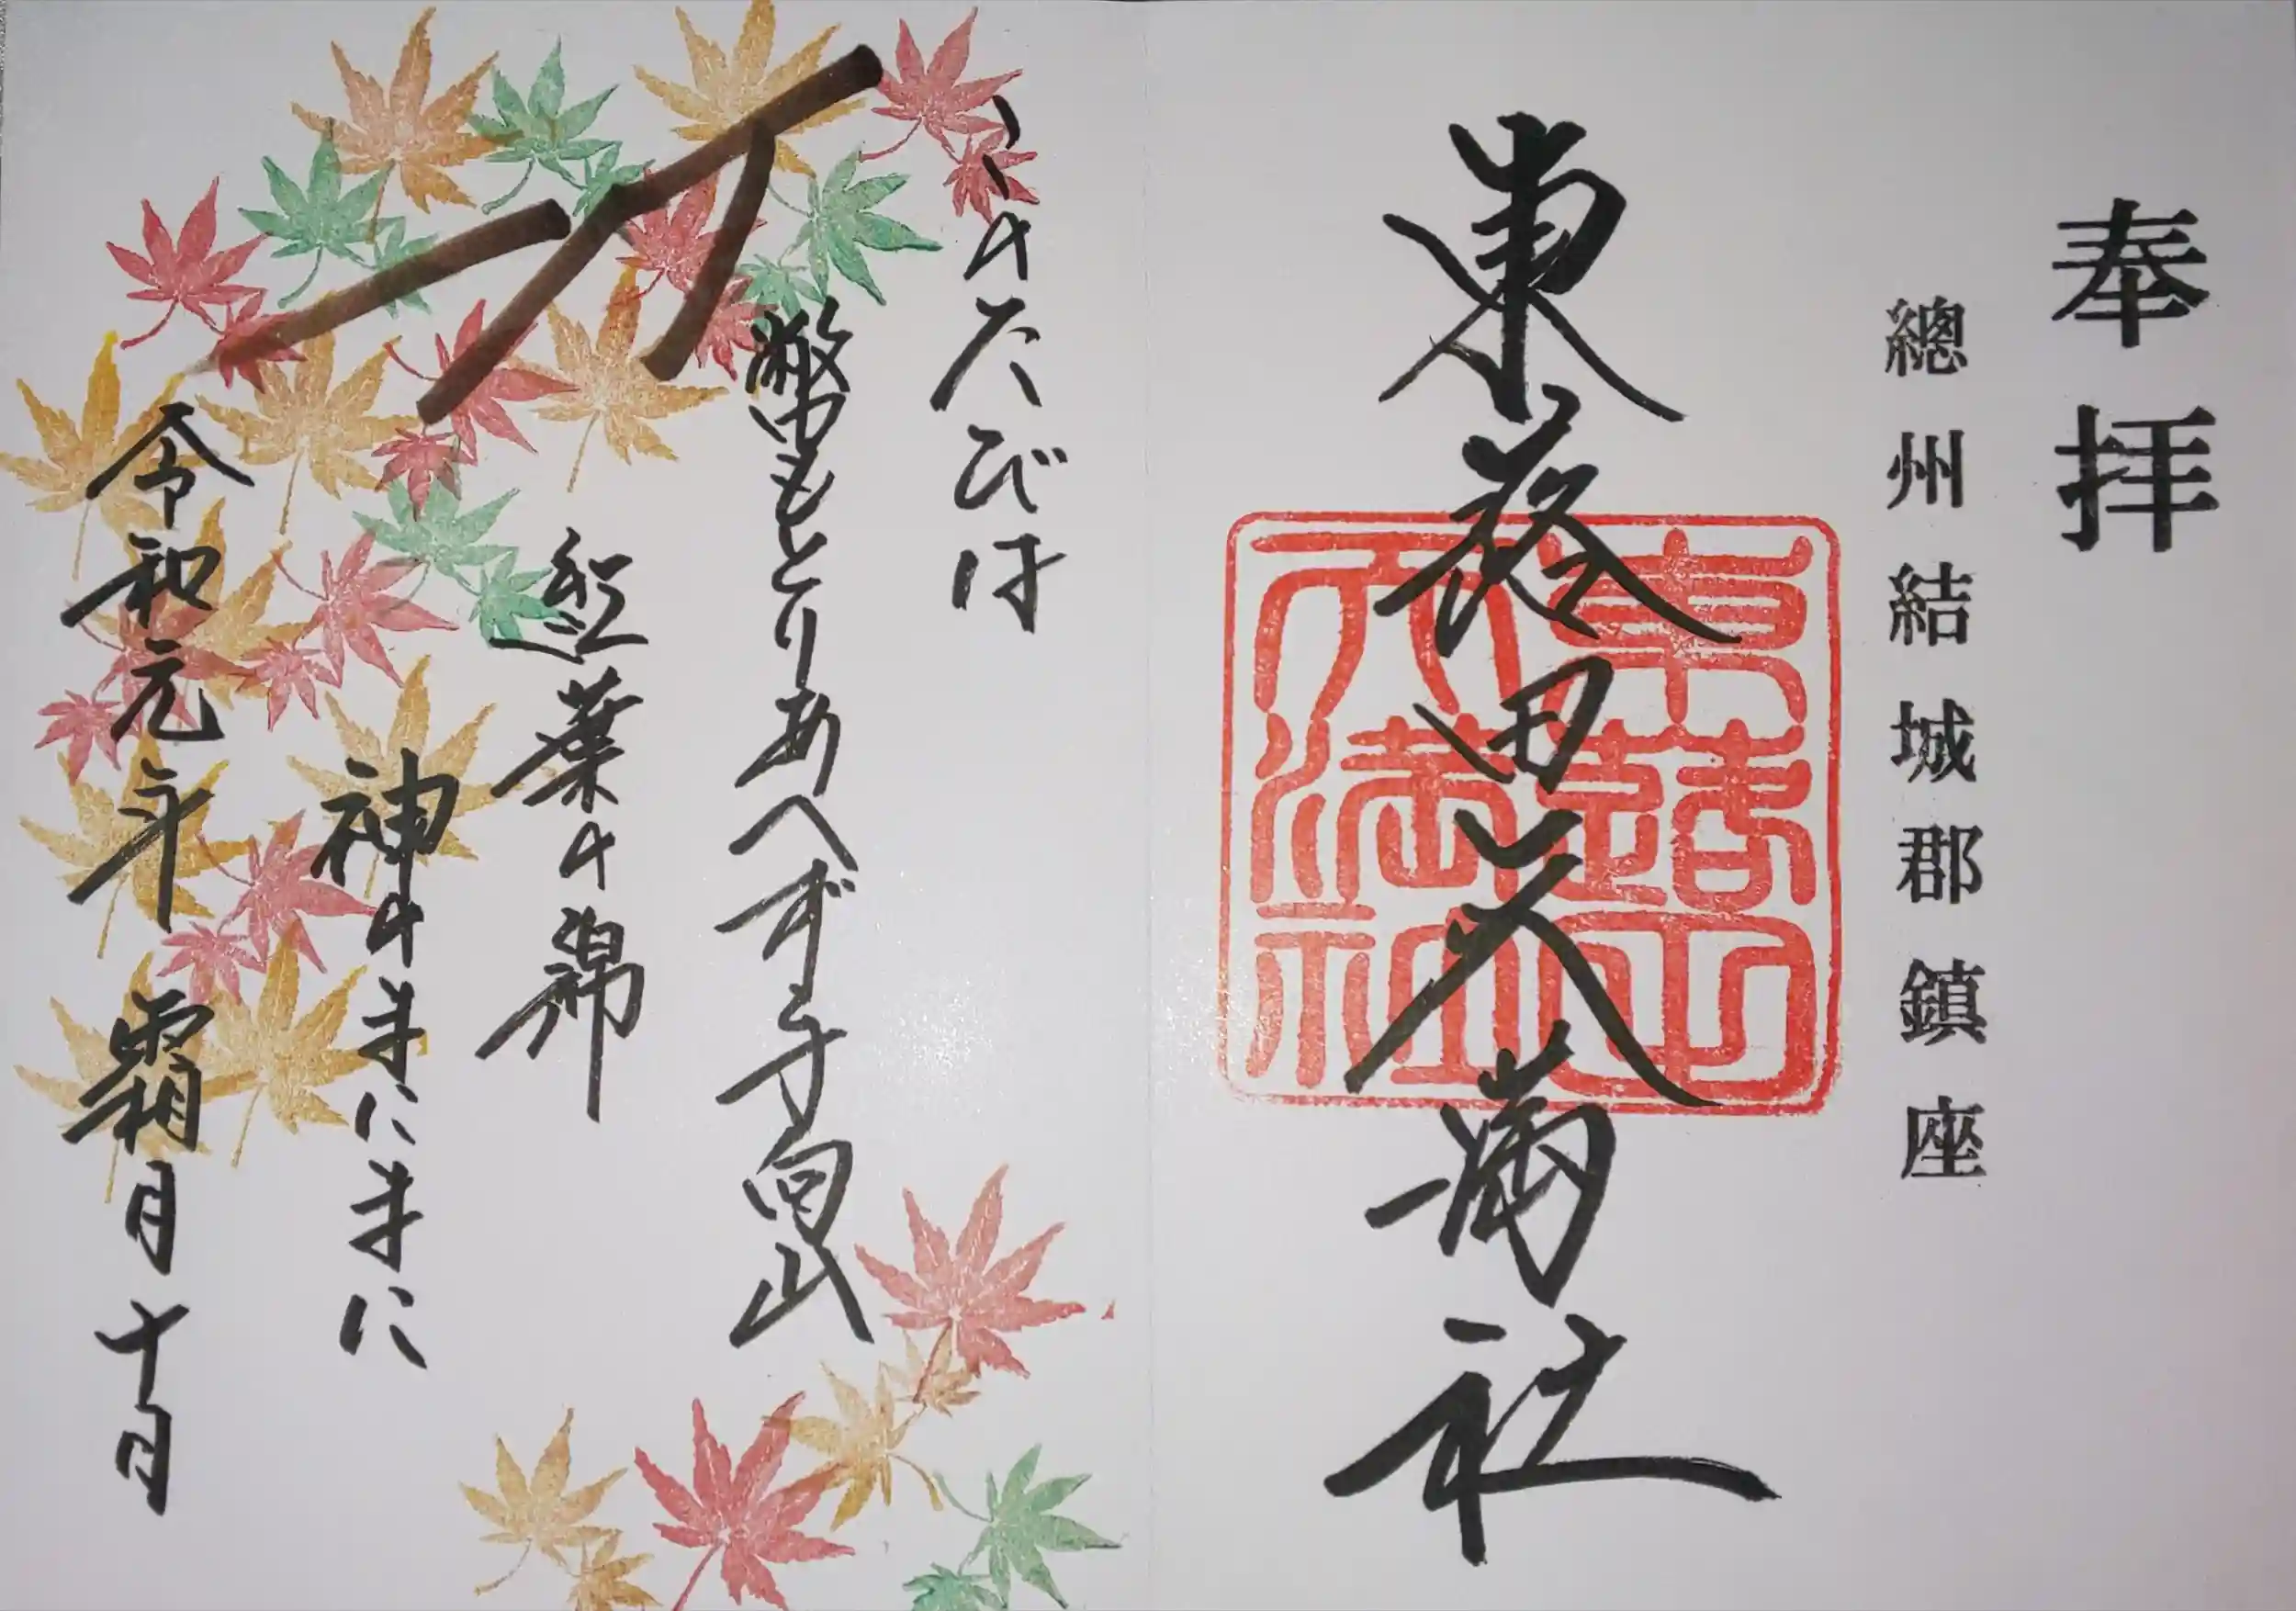 奉拝
總州結城郡鎮座
東蕗田天満社
東蕗田
天満社
このたびは
幣もとりあへず手向山
紅葉の錦
神のまにまに
令和元年霜月十日